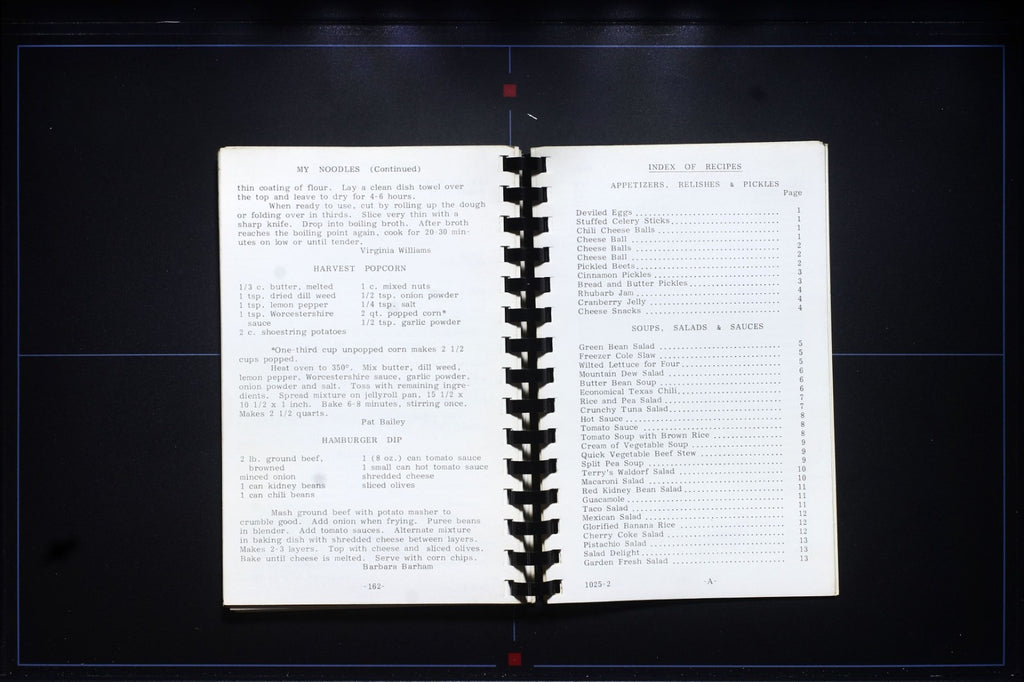 MY NOODLES (Continued)
thin coating of flour. Lay a clean dish towel over
the top and leave to dry for 4-6 hours.
When ready to use, cut by rolling up the dough
or folding over in thirds. Slice very thin with a
sharp knife. Drop into boiling broth. After broth
reaches the boiling point again, cook for 20-30 min-
utes on low or until tender.
Virginia Williams
HARVEST POPCORN
1/3 c. butter, melted
1 tsp. dried dill weed
1 tsp. lemon pepper
1 tsp. Worcestershire
sauce
2 c. shoestring potatoes
1 c. mixed nuts
1/2 tsp. onion powder
1/4 tsp. salt
2 qt. popped corn*
1/2 tsp. garlic powder
*One-third cup unpopped corn makes 2 1/2
cups popped.
Heat oven to 350°. Mix butter, dill weed,
lemon pepper, Worcestershire sauce, garlic powder,
onion powder and salt. Toss with remaining ingre-
dients. Spread mixture on jellyroll pan, 15 1/2 x
10 1/2 x 1 inch. Bake 6-8 minutes, stirring once.
Makes 2 1/2 quarts.
Pat Bailey
HAMBURGER DIP
2 lb. ground beef,
browned
minced onion
1 can kidney beans
1 can chili beans
1 (8 oz.) can tomato sauce
1 small can hot tomato sauce
shredded cheese
sliced olives
Mash ground beef with potato masher to
crumble good. Add onion when frying. Puree beans
in blender. Add tomato sauces. Alternate mixture
in baking dish with shredded cheese between layers.
Makes 2-3 layers. Top with cheese and sliced olives.
Bake until cheese is melted. Serve with corn chips.
Barbara Barham
-162-
INDEX OF RECIPES
APPETIZERS, RELISHES & PICKLES
Page
Deviled Eggs 1
Stuffed Celery Sticks 1
Chili Cheese Balls 1
Cheese Ball 1
Cheese Balls 2
Cheese Ball 2
Pickled Beets 2
Cinnamon Pickles 3
Bread and Butter Pickles 3
Rhubarb Jam 4
Cranberry Jelly 4
Cheese Snacks 4
SOUPS, SALADS & SAUCES
Green Bean Salad 5
Freezer Cole Slaw 5
Wilted Lettuce for Four 5
Mountain Dew Salad 6
Butter Bean Soup 6
Economical Texas Chili 6
Rice and Pea Salad 7
Crunchy Tuna Salad 7
Hot Sauce 8
Tomato Sauce 8
Tomato Soup with Brown Rice 8
Cream of Vegetable Soup 9
Quick Vegetable Beef Stew 9
Split Pea Soup 9
Terry's Waldorf Salad 10
Macaroni Salad 10
Red Kidney Bean Salad 11
Guacamole 11
Taco Salad 11
Mexican Salad 12
Glorified Banana Rice 12
Cherry Coke Salad 12
Pistachio Salad 13
Salad Delight 13
Garden Fresh Salad 13
1025-2
-A-